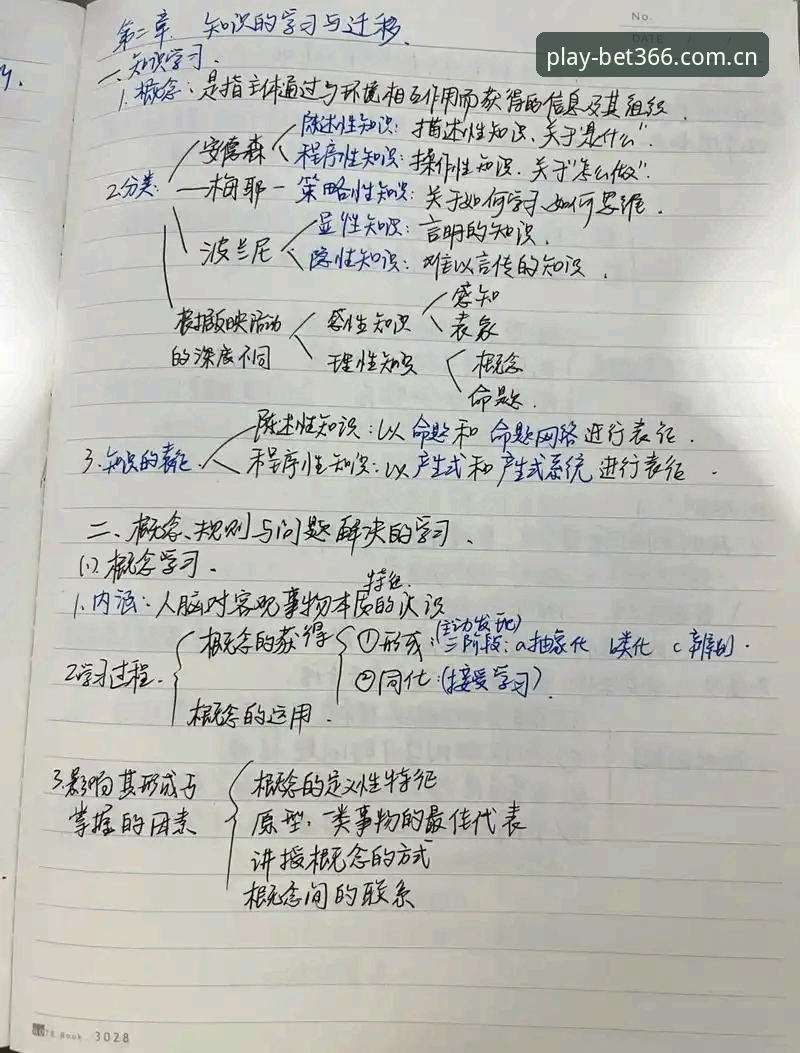 No.
DATE
play-bet366.com.cn
第二章. 知识的学习与迁移.
一、知识学习.
1. 概念: 是指主体通过与环境相互作用而获得的信息及其组织.
安德森
陈述性知识: 描述性知识、关于"是什么".
程序性知识: 操作性知识. 关于"怎么做".
2.分类: 梅耶 - 策略性知识: 关于如何学习、如何思维.
波兰尼
显性知识: 言明的知识.
隐性知识: 难以言传的知识.
根据反映活动
的深度不同
感性知识
感知
表象
理性知识
概念
命题.
3.知识的表征
陈述性知识: 以命题和命题网络进行表征.
程序性知识: 以产生式和产生式系统进行表征.
二、概念、规则与问题解决的学习.
(1).概念学习.
特征.
1.内涵: 人脑对客观事物本质的认识
2.学习过程.
概念的获得
(主动发现)
①形成: 三阶段: a抽象化 b类化 c辨别.
②同化:(接受学习).
概念的运用.
3.影响其形成与
掌握的因素
概念的定义性特征
原型: 一类事物的最佳代表
讲授概念的方式
概念间的联系
Book 3028